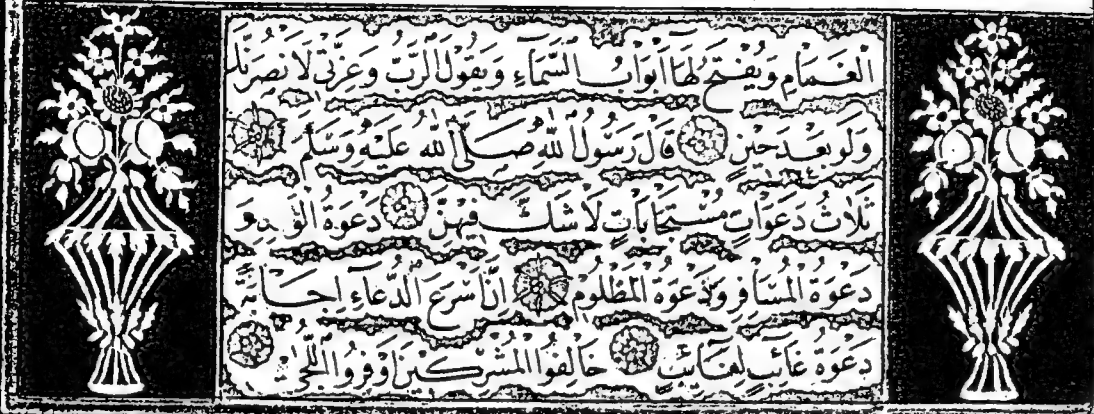 الْغَمَامِ وَيُفْتَحُ لَهَا أَبْوَابُ السَّمَاءِ وَيَقُولُ الرَّبُّ وَعِزَّتِي لَأَنْصُرَنَّكَ
وَلَوْ بَعْدَ حِيْنٍ قَالَ رَسُولُ اللّٰهِ صَلَّى اللّٰهُ عَلَيْهِ وَسَلَّمَ
ثَلَاثُ دَعَوَاتٍ مُسْتَجَابَاتٍ لَا شَكَّ فِيْهِنَّ دَعْوَةُ وَ
دَعْوَةُ الْمُسَافِرِ وَدَعْوَةُ الْمَظْلُومِ اِنَّ اَسْرَعَ الدُّعَاءِ اِجَابَةً
دَعْوَةُ غَائِبٍ لِغَائِبٍ خَالِفُوا الْمُشْرِكِيْنَ اَوْفِرُوا اللُّحَى